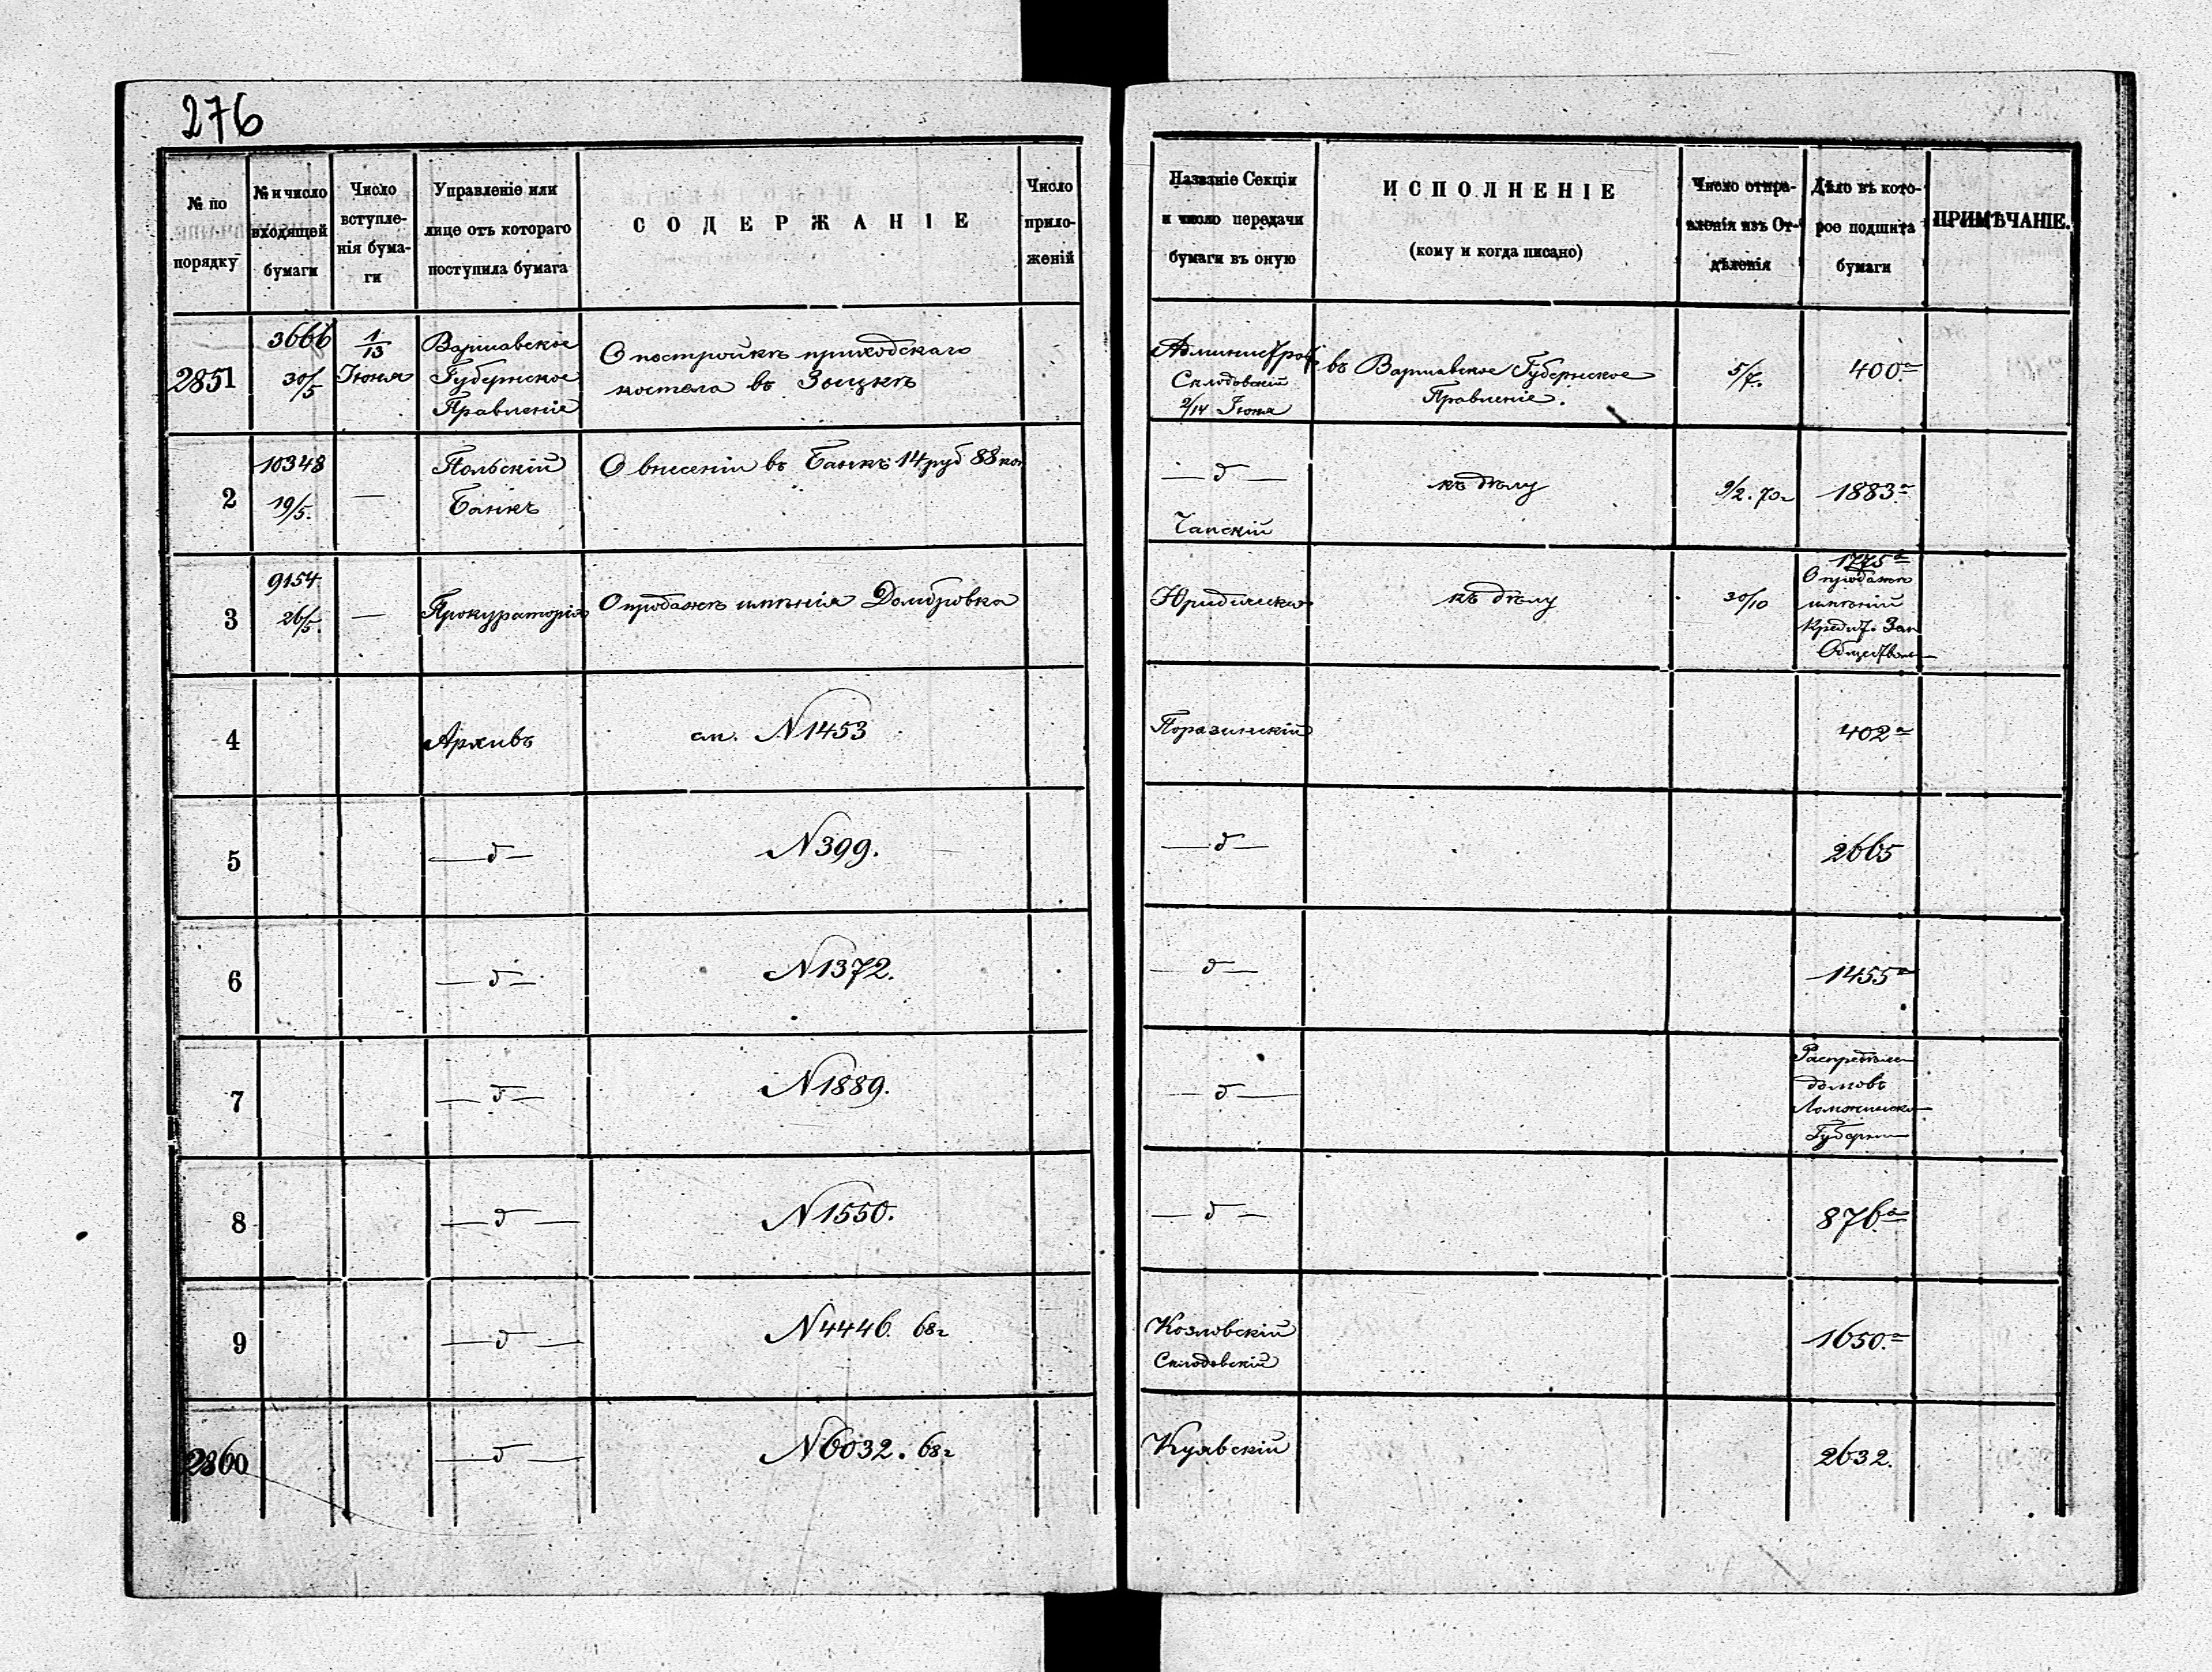 276
№ по порядку
№ и число входящей бумаги
Число вступле-нія бума-ги
Управленіе или лице отъ котораго поступила бумага
СОДЕРЖАНІЕ
Число прило-женій
Названіе Секціи и число передачи бумаги въ оную
ИСПОЛНЕНІЕ
(кому и когда писано)
Число отпра-вленія изъ От-дѣленія
Дѣло въ кото-рое подшита бумаги
ПРИМѢЧАНІЕ.
2851
3666
30/5
1/13
Іюня
Варшавское
Губернское
Правленіе
О постройкѣ приходскаго
костела въ
Склодовскій
2/14 Іюня
въ Варшавское Губернское
Правленіе.
5/7.
400.а
2
10348
19/5.
—
Польскій
Банкъ
О внесеніи въ Банкъ 14 руб 88 коп
— д —
Чапскій
къ дѣлу
9/2. 70г
1883а
3
9154
26/5.
—
Прокураторія
О продажѣ имѣнія Домбровка
Юридическая
къ дѣлу
30/10
1775а
О продажѣ
имѣній
Кредит. Зем
Обществом
4
Архивъ
см. N 1453
Поразинскій
402а
5
— д —
N 399.
— д —
2665
6
— д —
N 1372.
— д —
1455а
7
— д —
N 1889.
— д —
домовъ
Ломжинско
Губерніи
8
— д —
N 1550.
— д —
876.а
9
— д —
N 4446. 68г
Козловскій
Склодовскій
1650.а
2860
— д —
N 6032. 68г
Куявскій
2632.